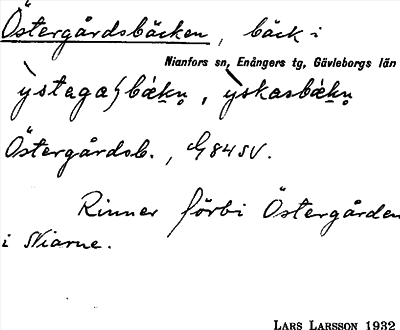 Östergårdsbäcken, bäck i
Nianfors sn, Enångers tg, Gävleborgs län
Östergårdsb., G84SV.
Rinner förbi Östergården
i Niarne.
LARS LARSSON 1932